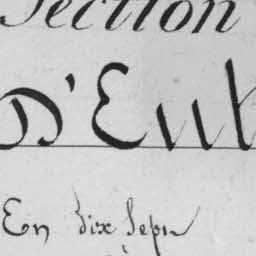 Section
D'Eut
En dix Sept